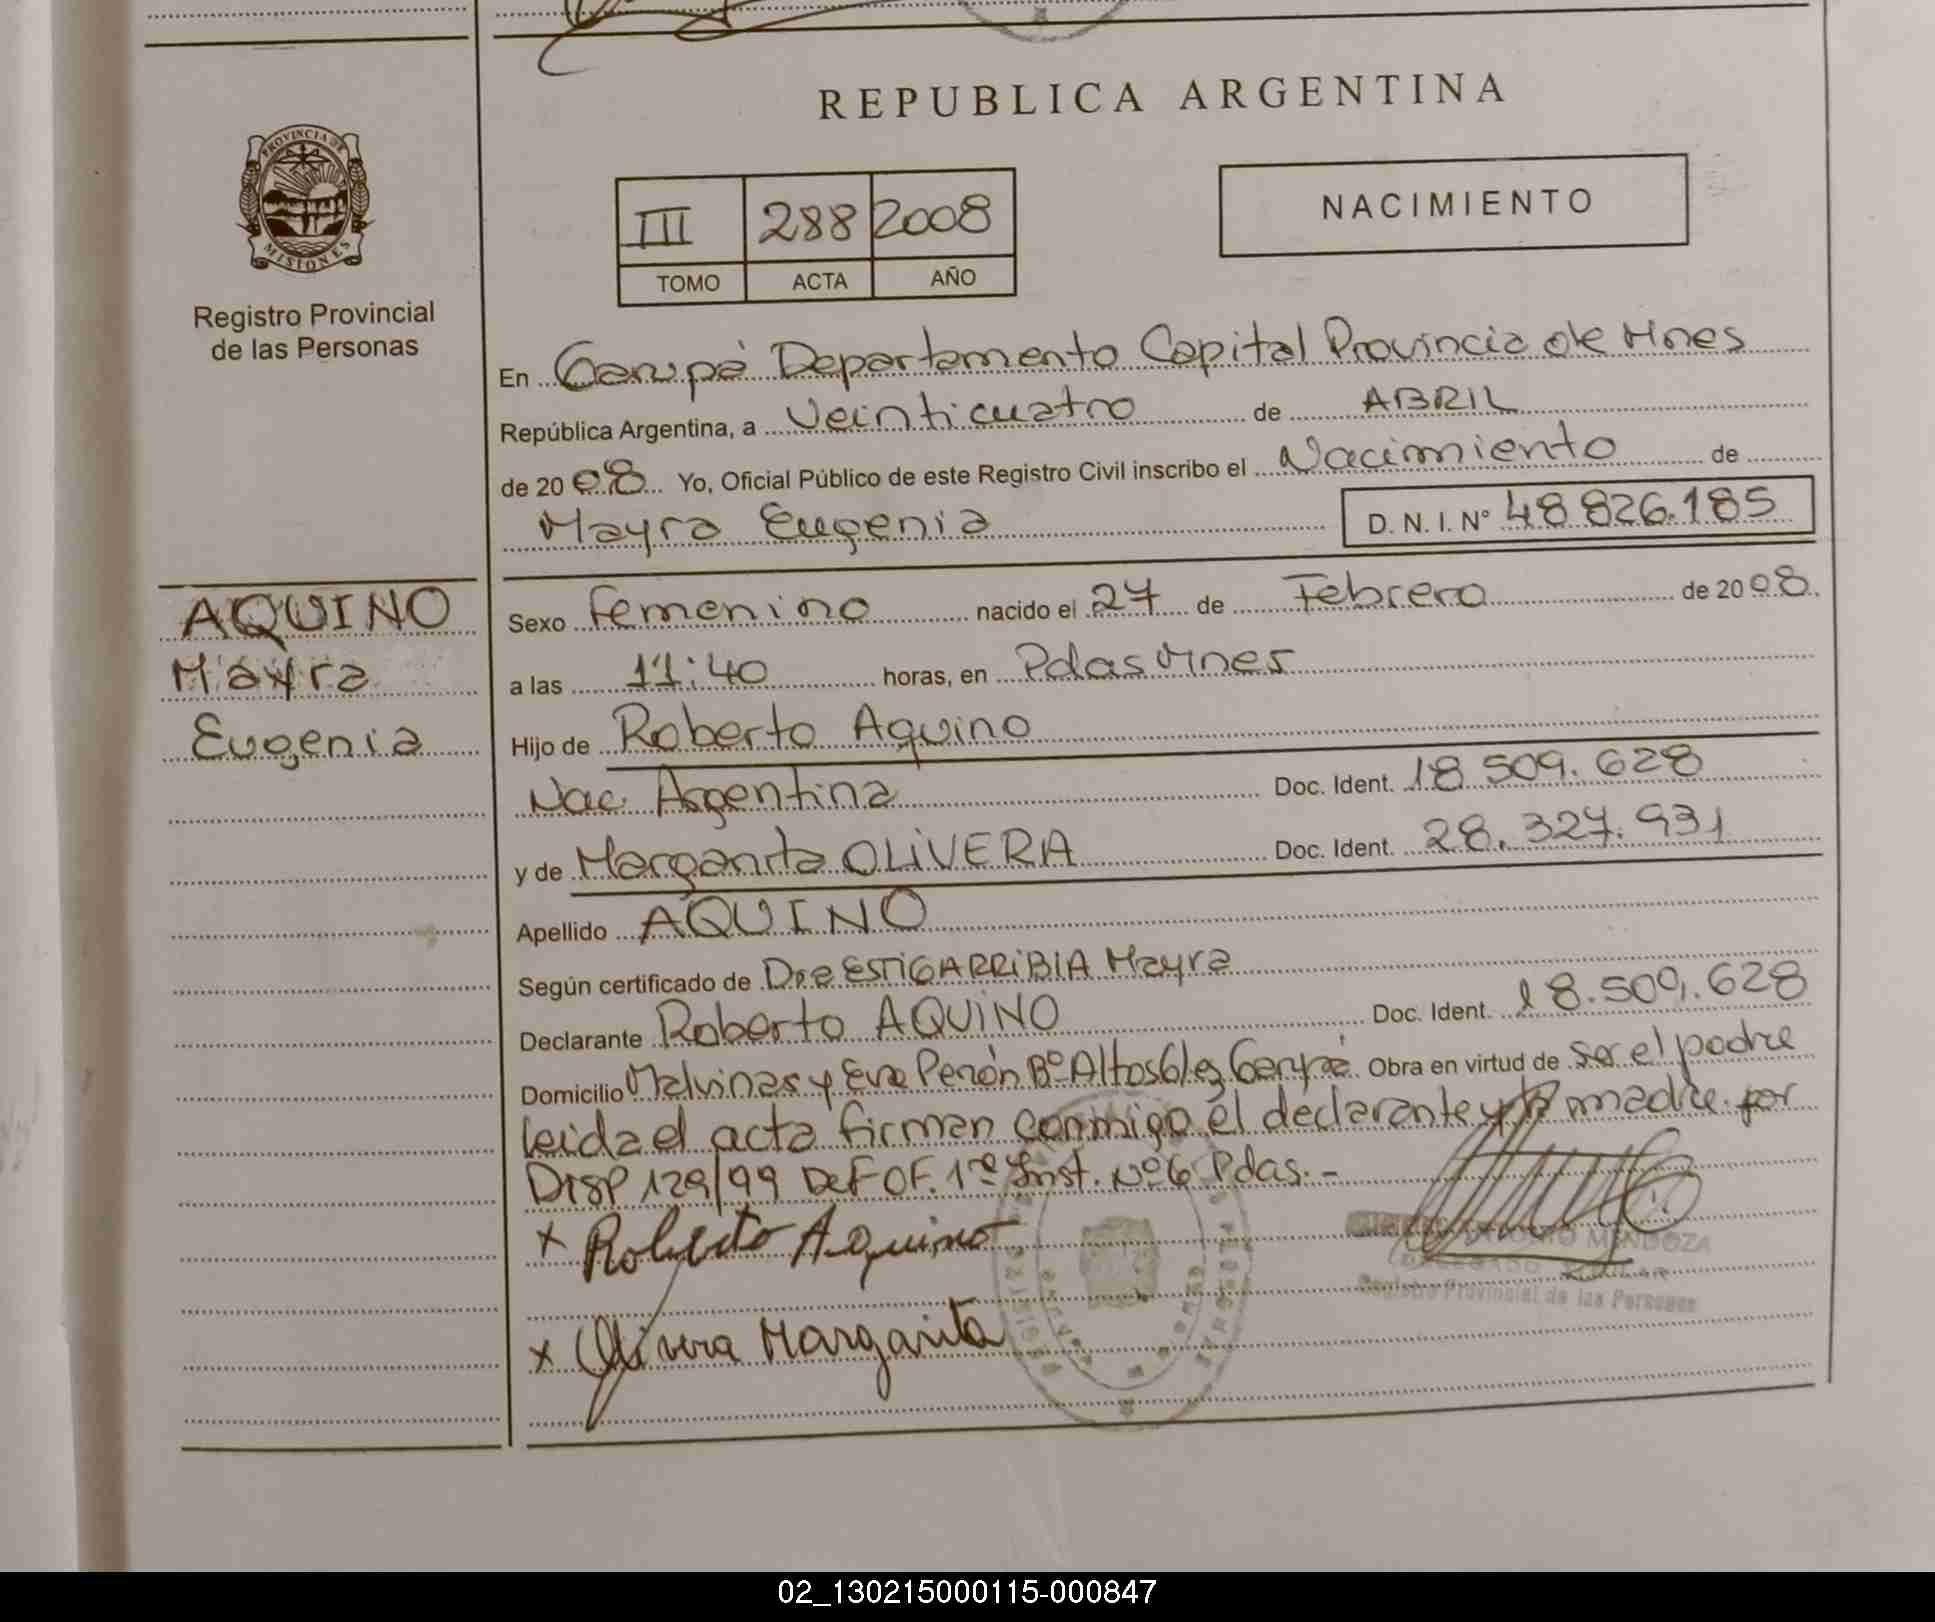 REPUBLICA ARGENTINA
PROVINCIA DE
MISIONES
Registro Provincial
de las Personas
III 288 2008
TOMO ACTA AÑO
NACIMIENTO
En Garupá Departamento Capital Provincia de Mnes
República Argentina, a Veinticuatro de ABRIL
de 2008 Yo, Oficial Público de este Registro Civil inscribo el Nacimiento de
Mayra Eugenia D. N. I. Nº 48 826.185
AQUINO
Mayra
Eugenia
Sexo Femenino nacido el 27 de Febrero de 2008.
a las 11:40 horas, en Pdas Mnes
Hijo de Roberto Aquino
Nac. Argentina Doc. Ident. 18.509.628
y de Margarita OLIVERA Doc. Ident. 28.327.931
Apellido AQUINO
Según certificado de Dra ESTIGARRIBIA Mayra
Declarante Roberto AQUINO Doc. Ident. 18.509.628
Domicilio Malvinas y Eva Perón Bº Altos Garupá Obra en virtud de ser el padre
leida el acta firman conmigo el declarante y la madre por
DISP 129/99 DEF OF. 1º Inst. Nº 6 Pdas.-
x Roberto Aquino
MENDOZA
DELEGADO
Registro Provincial de las Personas
x Olivera Margarita
02_130215000115-000847